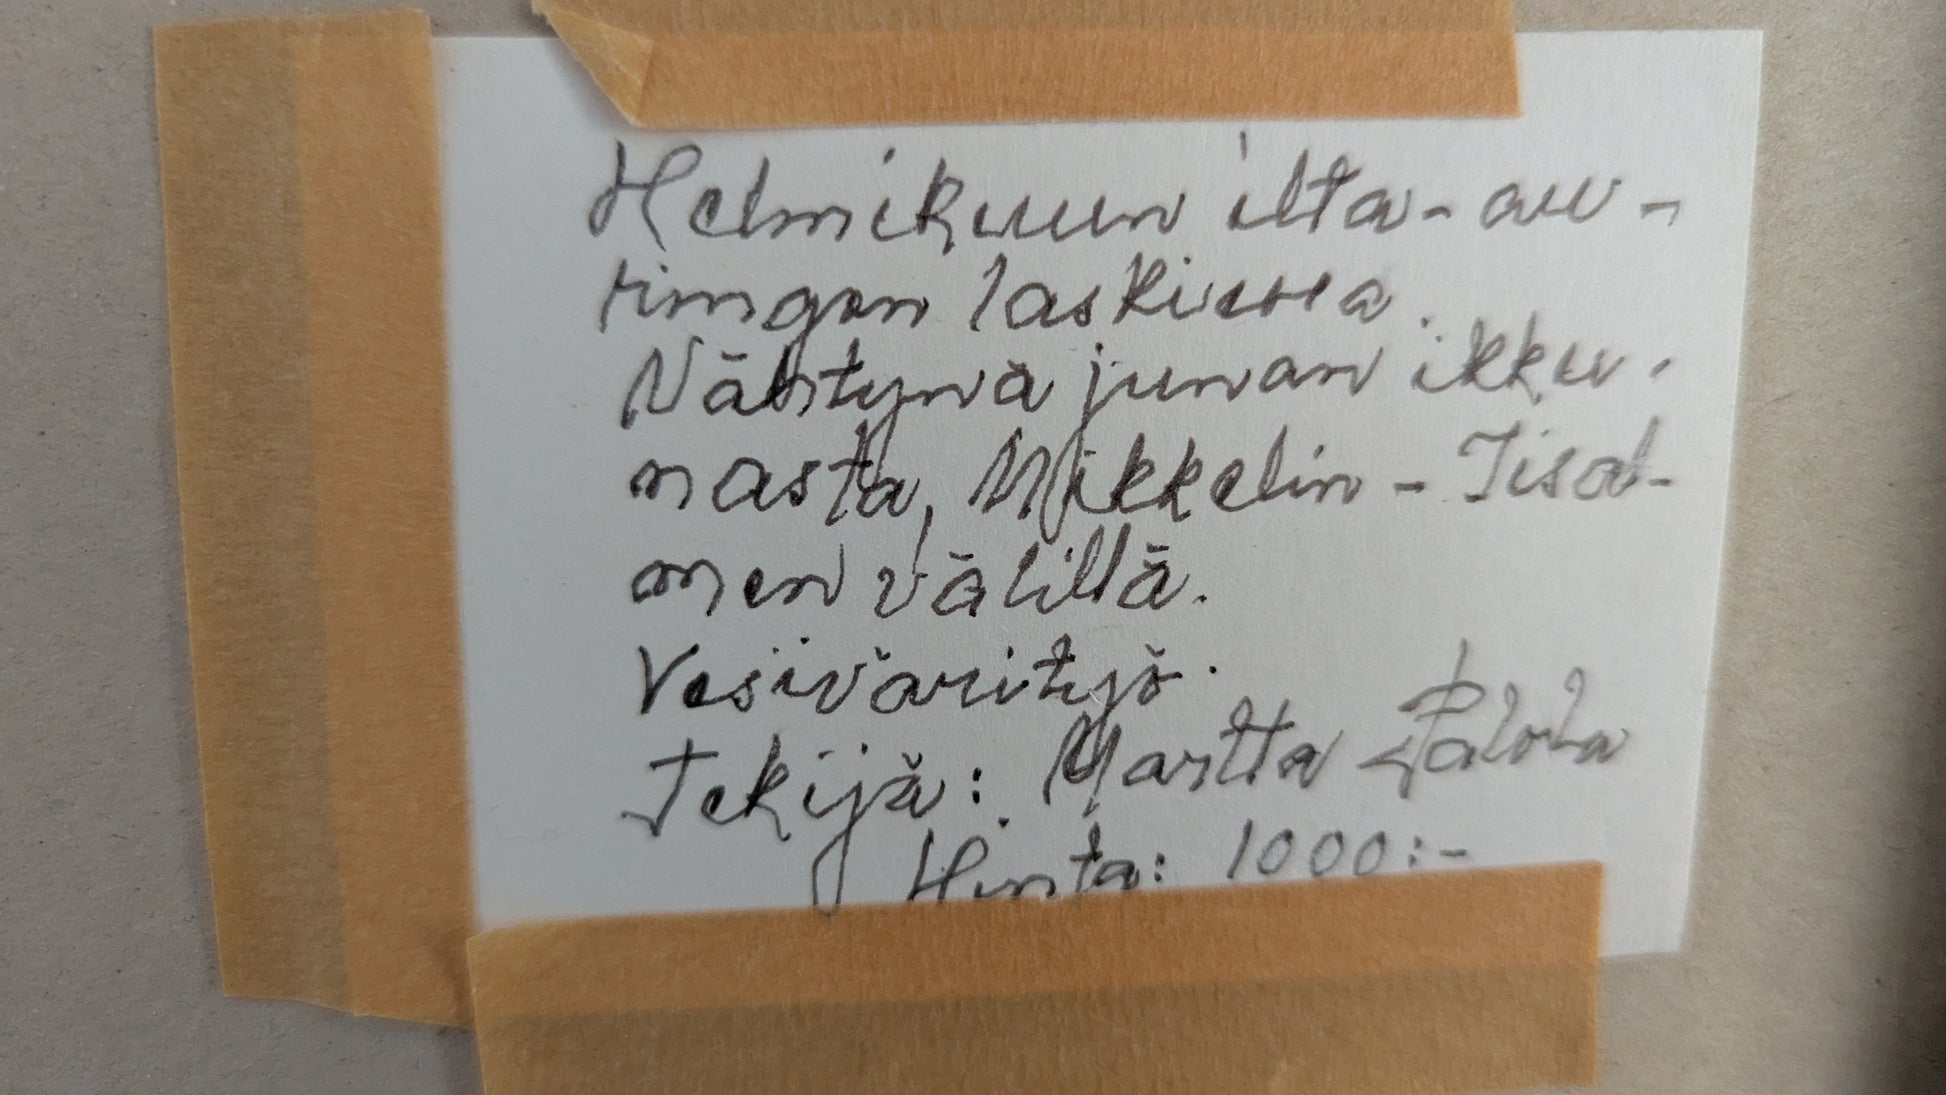 Helmikuun ilta-au-
ringon laskiessa.
Nähtynä junan ikku-
nasta, Mikkelin - Iisal-
men välillä.
Vesivärityö.
Tekijä: Martta Palola
Hinta: 1000:-